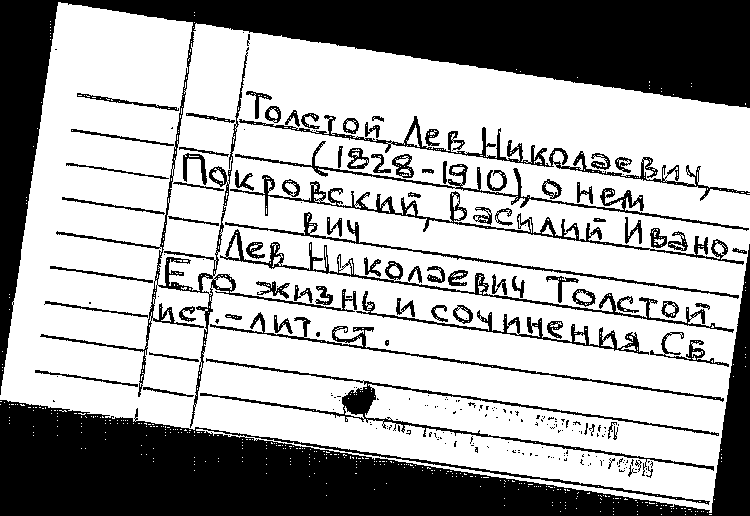 Толстой, Лев Николаевич,
(1828-1910), о нем
Покровский, Василий Ивано-
вич
Лев Николаевич Толстой.
Его жизнь и сочинения. Сб.
ист.-лит. ст.